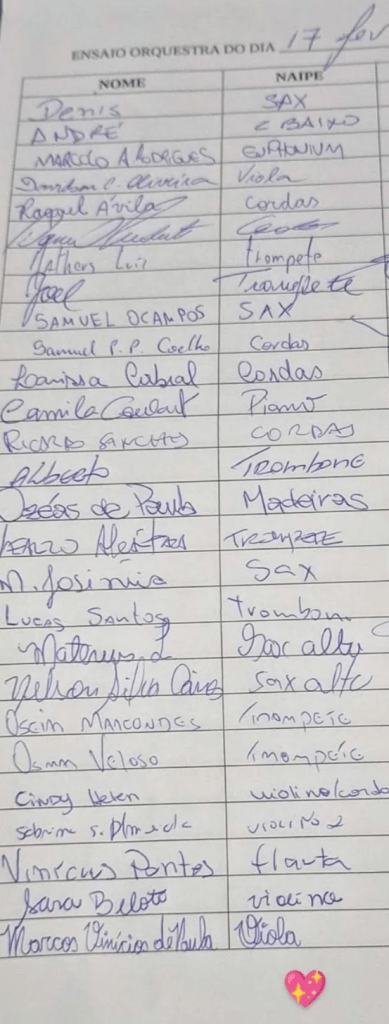 ENSAIO ORQUESTRA DO DIA 17 fev
NOME NAIPE
Denis SAX
ANDRÉ C BAIXO
MARCELO A RODRIGUES EUPHONIUM
C. Oliveira Viola
Raquel Ávila Cordas
Matheus Luiz trompete
Joel Trompete
SAMUEL OCAMPOS SAX
Samuel P. P. Coelho Cordas
Larissa Cabral Cordas
Camila Goulart Piano
RICARDO SANCHES CORDAS
Alberto Trombone
Ozéas de Paula Madeiras
TROMPETE
M. Josimio Sax
Lucas Santos trombon
Mateus L Sax alto
Nelson Silva sax alto
Oscim MARCONDES Trompete
Osmm Veloso Trompete
Cindy Helen violino/corda
s. Almeida violino 2
Vinícius Pontes flauta
Sara Beloto violino
Marcos Vinícios de Paula Viola